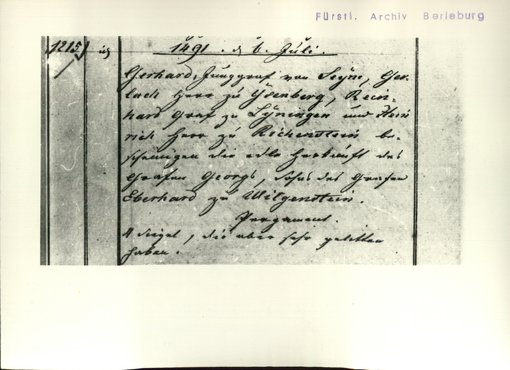 Fürstl. Archiv Berleburg
1215)
1491. d. 6. Juli.
Gerhard, Junggraf von Seyn, Ger-
lach Herr zu Ysenberg, Rein-
hard Graf zu Lyningen und Hein
rich Herr zu Richenstein be-
scheinigen die edle Herkunft des
Grafen Georgs, Sohns des Grafen
Eberhard zu Witgenstein.
Pergament.
4 Siegel, die aber sehr gelitten
haben.